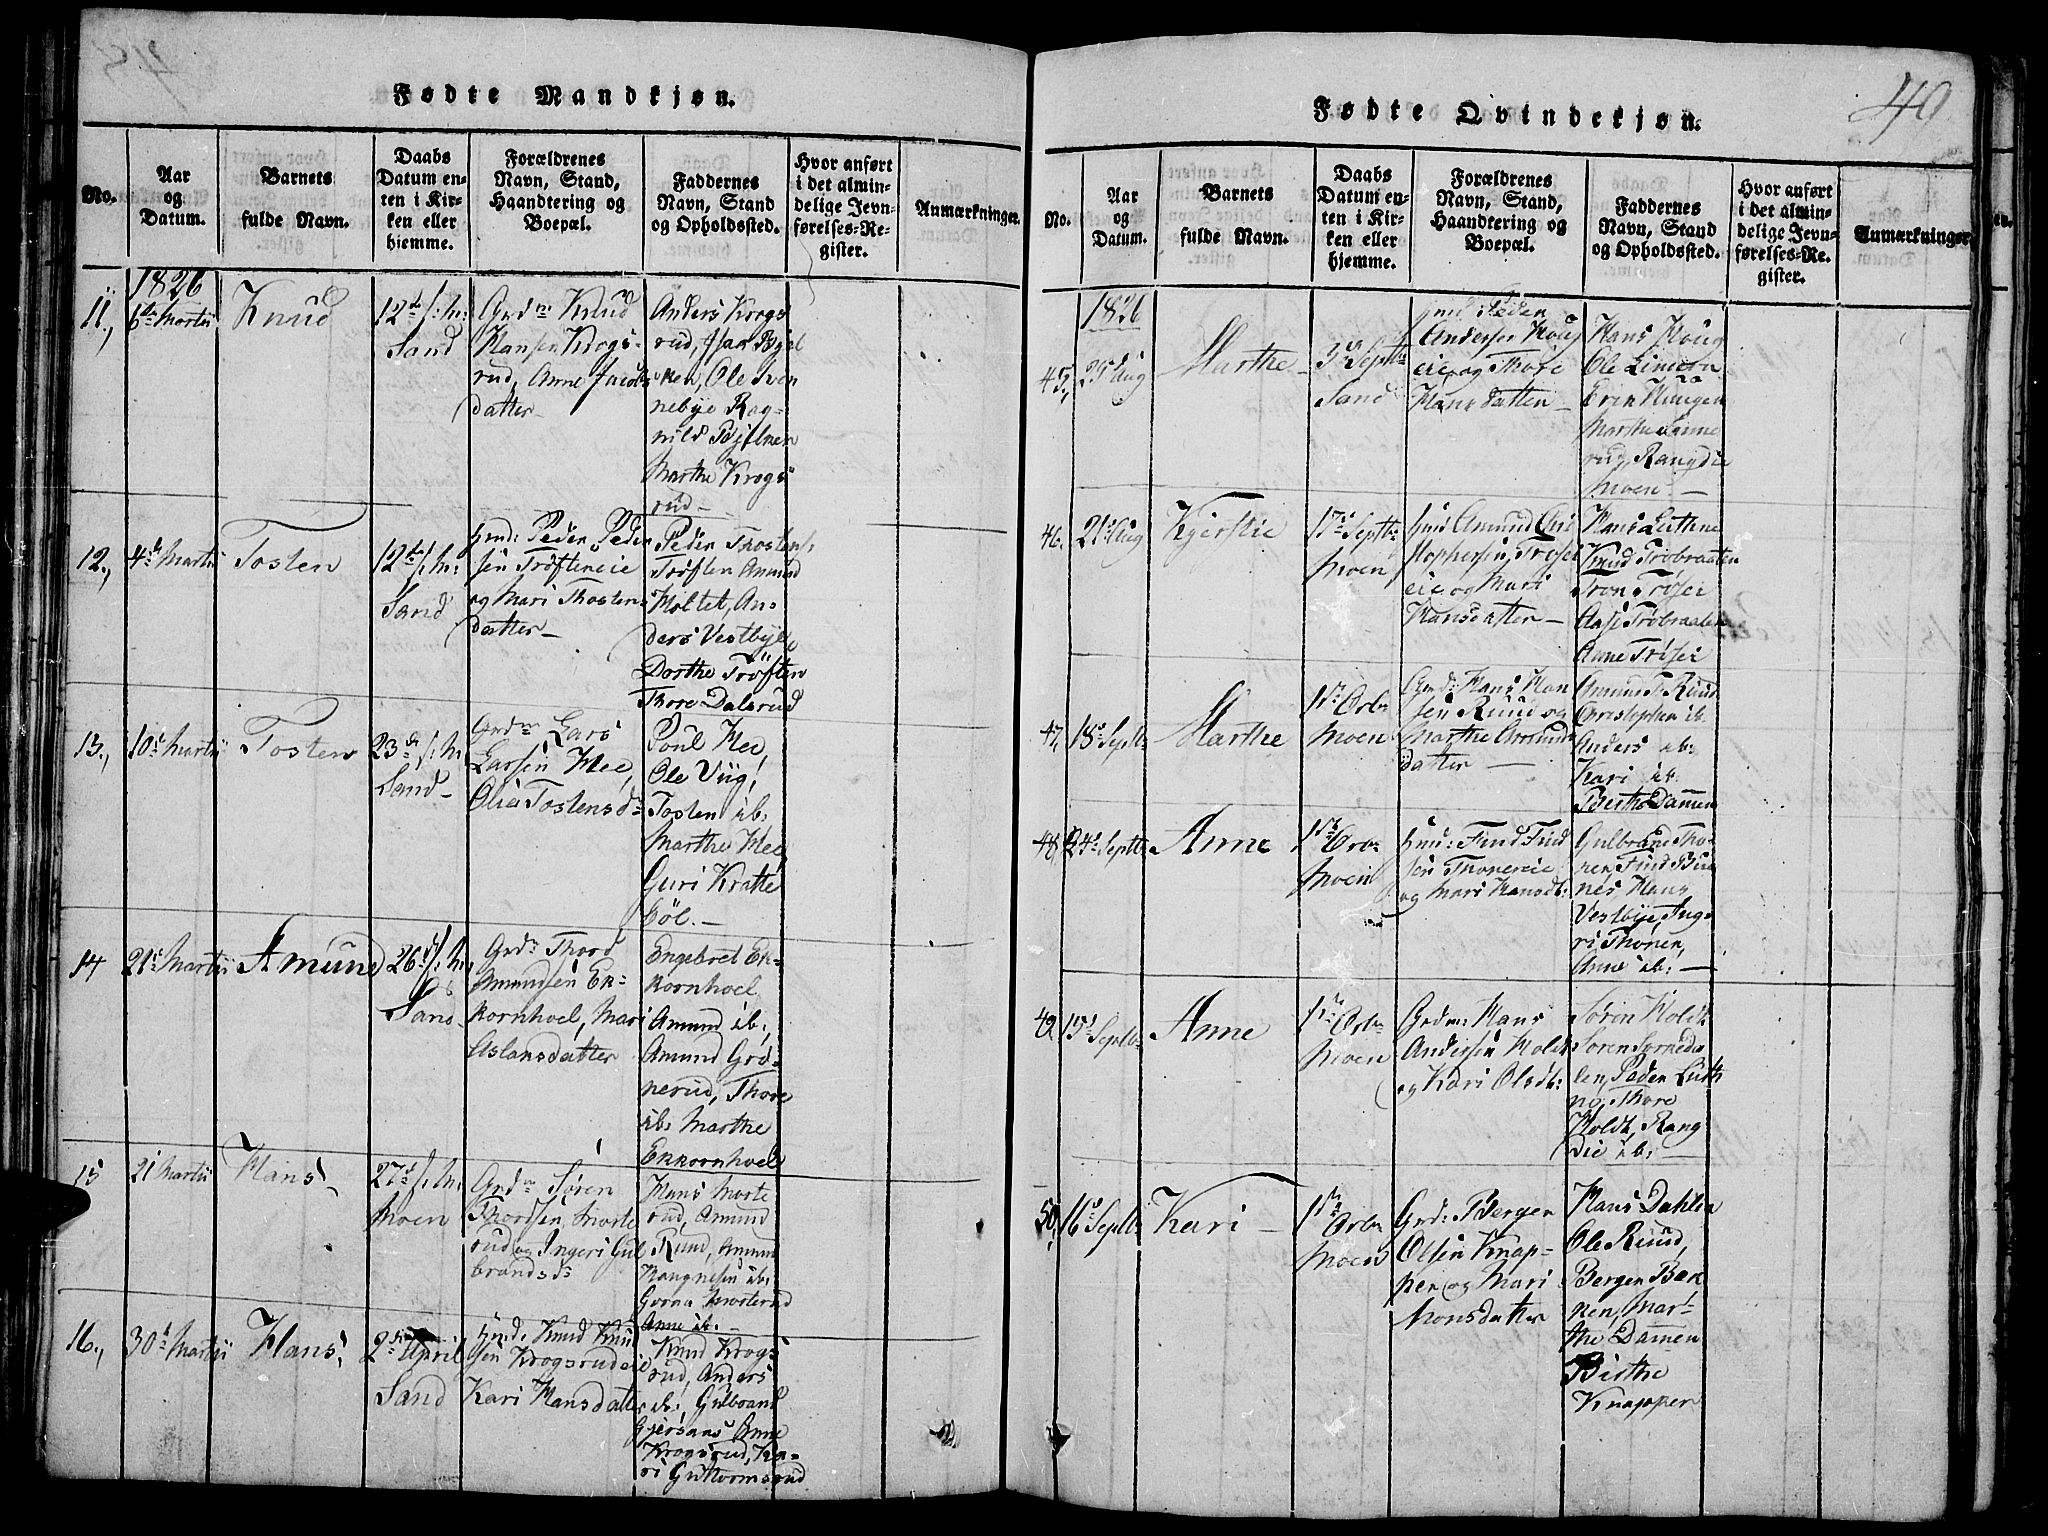 Fødte Mandkjøn.
No.
Aar
og
Datum.
Barnets
fulde Navn.
Daabs
Datum en-
ten i Kir-
ken eller
hjemme.
Forældrenes
Navn, Stand,
Haandtering og
Boepæl.
Faddernes
Navn, Stand
og Opholdssted.
Hvor anført
i det almin-
delige Jevn-
førelses-Re-
gister.
Anmærkninger.
1826
11.,
6te Martii
Knud
12te s: m:
Sand
Grdm Knud
Hansen Krogs-
rud, Anne Jacobs
datter
Anders Krogs
rud,
Ole Sven
nebye Rag-
nild
Marthe Krogs
rud
12.,
4de Martii
Tosten
12te s: m:
Sand
Hmd: Peder Peder
sen Trøftereie
og Mari Thostens
datter
Peder Thostens:
Trøften Amund
Moltet, An-
ders Vestbye
Dorthe Trøften
Thore Dalsrud
13.,
10de Martii
Tosten
23de s: m:
Sand
Grdm Lars
Larsen Mee,
Olia Tostensdr
Poul Mee,
Ole Viig,
Tosten ib:
Marthe Mee
Guri Kratte
bøl.
14
21de Martii
Amund
26de s: m:
Sand
Grdm Thord
Amundsen Ek-
kornhoel, Mari
Aslansdatter
Engebret Ek-
kornhoel
Amund ib:,
Amund Grø-
nerud, Thore
ib: Marthe
Ekkornhoel
15
21 Martii
Hans
27de s: m:
Moen
Grdm Søren
Thordsen Morte
rud og Ingeri Gul
brandsdr
Hans Morte
rud, Amund
Ruud, Amund
Mangnesen ib:
Gorna Morterud
Anne ib:
16.,
30de Martii
Hans,
2den April
Sand
Hmd: Knud Knud
sen Krogsrudeie
Kari Hansdatter
Knud Krogs
rud, Anders
ib:, Gulbrand
Gjersaas Anne
Krogsrud, Ka-
ri Guttormsrud
40
Fødte Qvindekjøn.
No.
Aar
og
Datum.
Barnets
fulde Navn.
Daabs
Datum en-
ten i Kir-
ken eller
hjemme.
Forældrenes
Navn, Stand,
Haandtering og
Boepæl.
Faddernes
Navn, Stand
og Opholdssted.
Hvor anført
i det almin-
delige Jevn-
førelses-Re-
gister.
Anmærkninger
1826
45.,
25de Aug
Marthe
3de Septbr
Sand
Hmd: Peder
Andersen Houg
eie og Thore
Hansdatter
Hans Houg
Ole
Marthe
rud, Rangdie
Moen
46.
21de Aug
Kjerstie
17de Septbr
Moen
Hmd Amund Chri
stophersen Trøsei
eie og Mari
Hansdatter
Hans Lithne
Knud Trøbraaten
Tron Trøsei
Aase Trøbraaten
Anne Trøsei
47,
18de Septbr
Marthe
1ste Octbr
Moen
Grd: Hans Han
sen Ruud og
Marthe Amunds
datter
Amund Ruud
Christopher ib.
Anders ib:
Kari ib.
Berthe Damen
48,
24de Septbr
Anne
1ste Octbr
Moen
Hmd: Find Find
sen Thonereie
og Mari Hansdt:
Gulbrand Tho-
nen, Find
nes Hans
Vestbye, Ing-
ri Thonen,
Anne ib:
49,
15de Septbr
Anne
1ste Octbr
Moen
Grdm: Hans
Andersen Holdt
og Kari Olsdt:
Søren Holdt
Søren
len, Peder Lith
ne, Thore
Holdt, Rang
die ib:
50,
16de Septbr
Kari
1ste Octbr
Moen
Grd: Bergen
Olsen Knap-
pen og Mari
Monsdatter
Hans Dahlen
Ole Ruud,
Bergen Bæk
ken, Mar-
the Damen
Birthe
Knappen